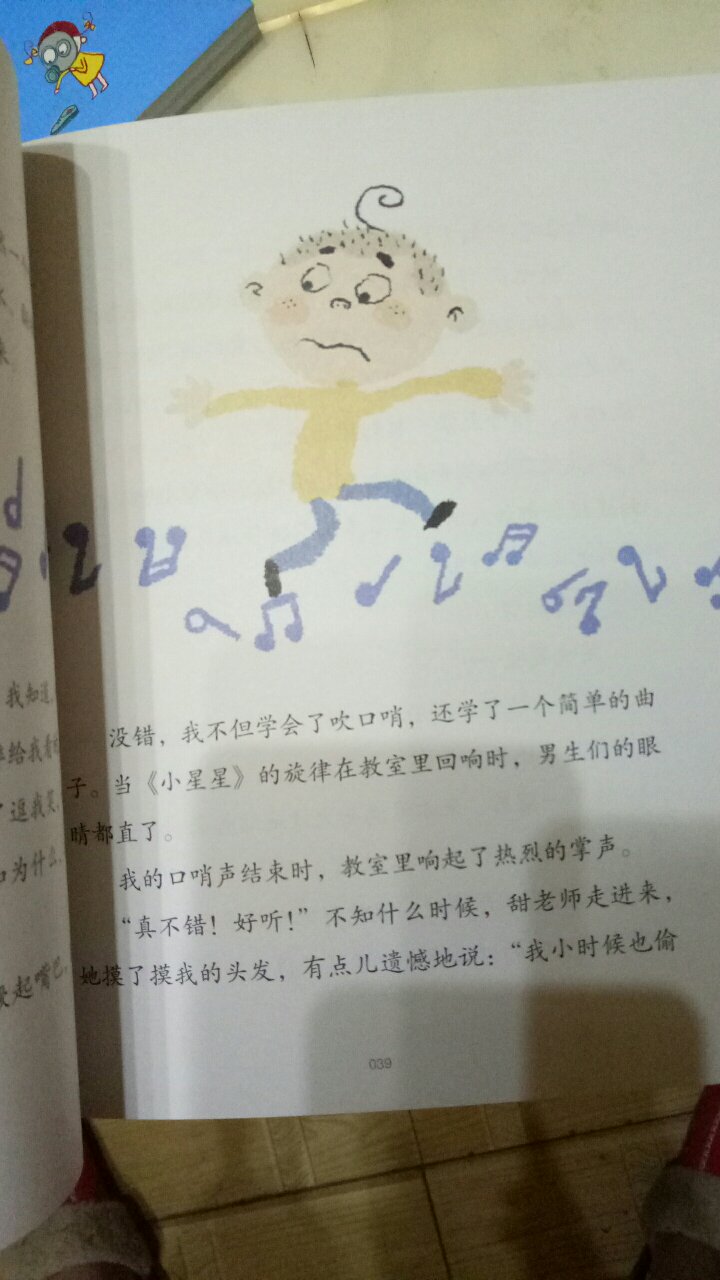 我知道，
给我看
逗我笑，
为什么，
起嘴巴，
没错，我不但学会了吹口哨，还学了一个简单的曲
子。当《小星星》的旋律在教室里回响时，男生们的眼
睛都直了。
我的口哨声结束时，教室里响起了热烈的掌声。
“真不错！好听！”不知什么时候，甜老师走进来，
她摸了摸我的头发，有点儿遗憾地说：“我小时候也偷
039